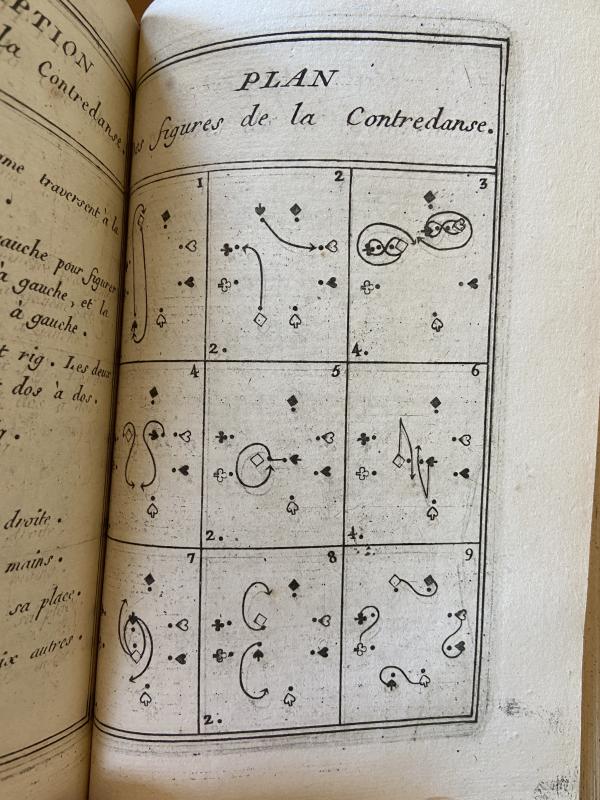 PTION
la Contredanse.
me traversent à la
gauche pour figurer
à gauche, et la
à gauche.
t rig. Les deux
dos à dos.
droite.
mains.
sa place.
ix autres.
PLAN
figures de la Contredanse.
1
2
3
2.
4.
4
5
6
2.
4.
7
8
9
2.